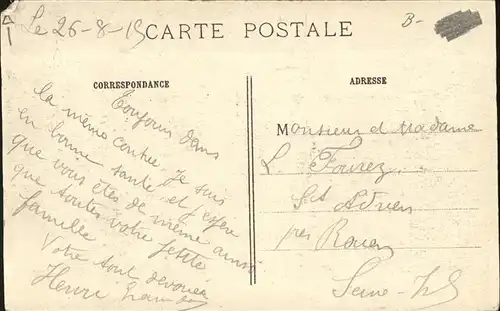 Le 26-8-15
CARTE POSTALE
B-
CORRESPONDANCE
Toujours dans
la même contrée. Je suis
en bonne santé et espère
que vous êtes de même ainsi
que toutes votre petite
famille
Votre tout dévoué
Henri
ADRESSE
Monsieur et Madame
L. Fourez
St Adrien
près Rouen
Seine-